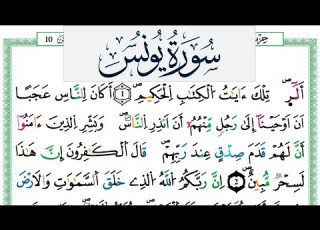 سُورَةُ يُونُسَ
10
أَلَٓرۖ تِلْكَ ءَايَٰتُ اُ۬لْكِتَٰبِ اِ۬لْحَكِيمِۖ ١ أَكَانَ لِلنَّاسِ عَجَبًا
اَنَ اَوْحَيْنَآ إِلَىٰ رَجُلٖ مِّنْهُمُۥٓ أَنَ اَنذِرِ اِ۬لنَّاسَۖ وَبَشِّرِ اِ۬لذِينَ ءَامَنُوٓاْ
أَنَّ لَهُمْ قَدَمَ صِدْقٍ عِندَ رَبِّهِمْۖ قَالَ اَ۬لْكَٰفِرُونَ إِنَّ هَٰذَا
لَسِحْرٞ مُّبِينٌۖ ٢ اِنَّ رَبَّكُمُ اُ۬للَّهُ اُ۬لذِے خَلَقَ اَ۬لسَّمَٰوَٰتِ وَالَارْضَ